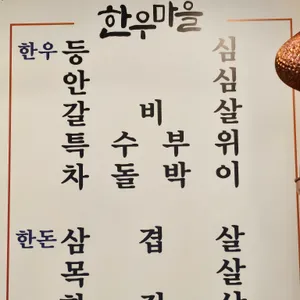 한우마을
한우 등심
안심
갈비살
특수부위
차돌박이
한돈 삼겹살
목살